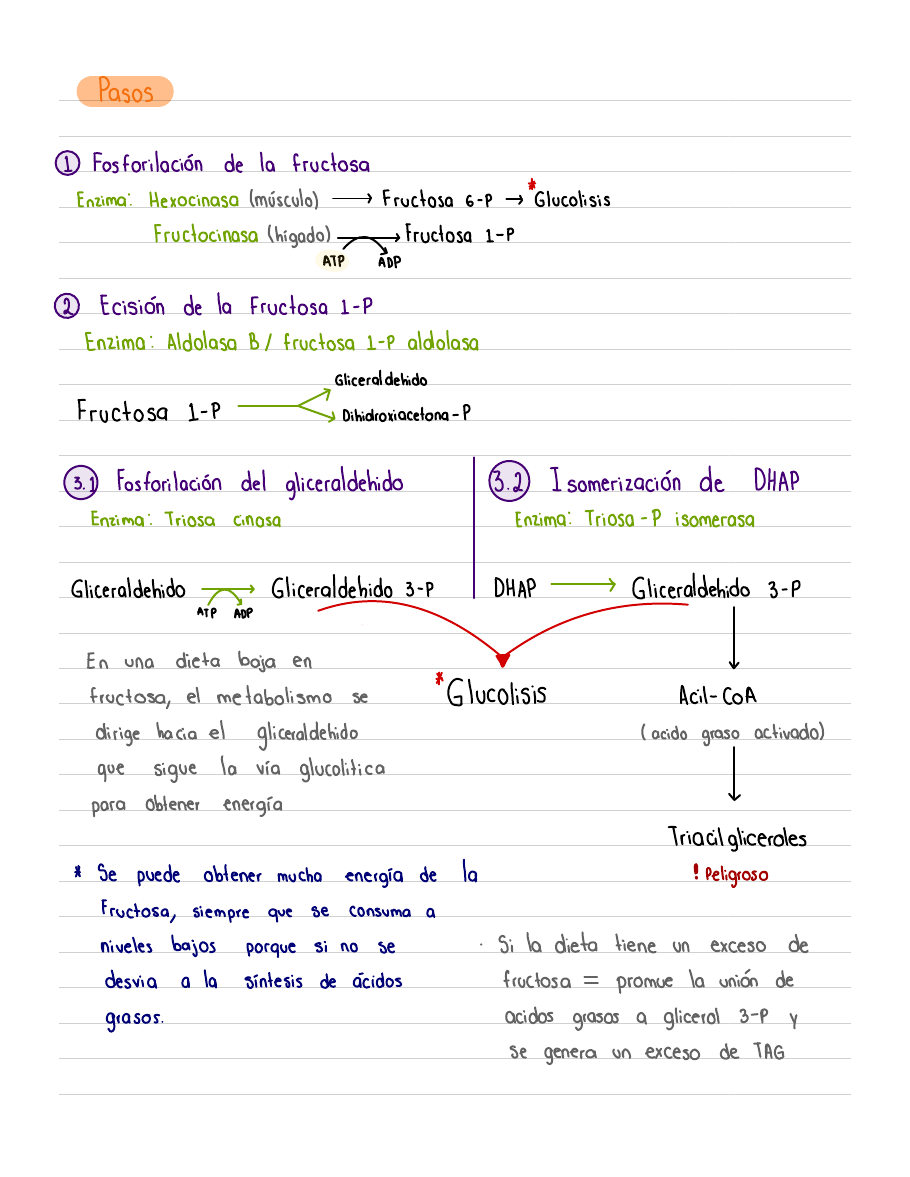 Pasos
1 Fosforilación de la fructosa
Enzima: Hexocinasa (músculo) → Fructosa 6-P → *Glucolisis
Fructocinasa (hígado) → Fructosa 1-P
ATP ADP
2 Ecisión de la Fructosa 1-P
Enzima: Aldolasa B / fructosa 1-P aldolasa
Gliceraldehido
Fructosa 1-P
Dihidroxiacetona-P
3.1 Fosforilación del gliceraldehido
Enzima: Triosa cinasa
Gliceraldehido → Gliceraldehido 3-P
ATP ADP
3.2 Isomerización de DHAP
Enzima: Triosa-P isomerasa
DHAP → Gliceraldehido 3-P
*Glucolisis
Acil-CoA
(acido graso activado)
Triacilgliceroles
! Peligroso
En una dieta baja en
fructosa, el metabolismo se
dirige hacia el gliceraldehido
que sigue la vía glucolitica
para obtener energía
* Se puede obtener mucha energía de la
Fructosa, siempre que se consuma a
niveles bajos porque si no se
desvia a la síntesis de ácidos
grasos.
· Si la dieta tiene un exceso de
fructosa = promue la unión de
acidos grasos a glicerol 3-P y
se genera un exceso de TAG